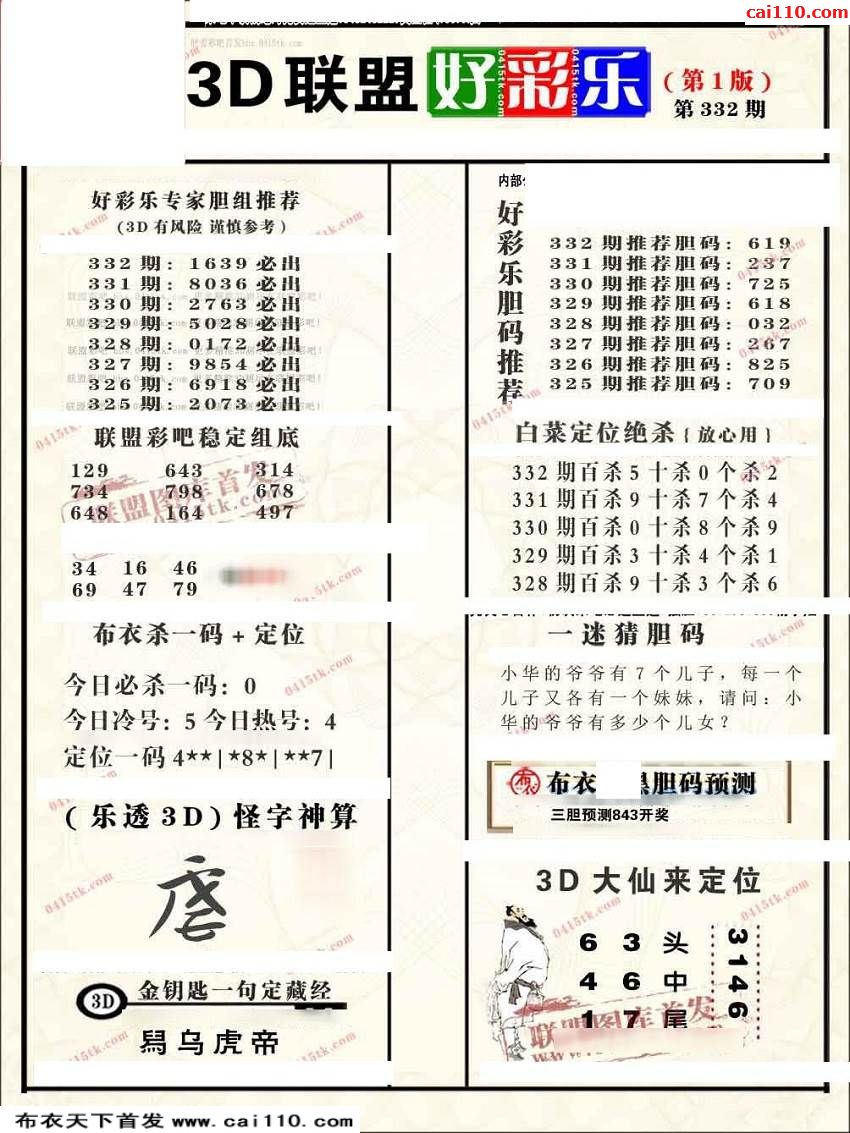 cai110.com
3D联盟好彩乐
(第1版)
第332期
好彩乐专家胆组推荐
(3D有风险 谨慎参考)
332期: 1639必出
331期: 8036必出
330期: 2763必出
329期: 5028必出
328期: 0172必出
327期: 9854必出
326期: 6918必出
325期: 2073必出
联盟彩吧稳定组底
129 643 314
734 798 678
648 164 497
34 16 46
69 47 79
布衣杀一码+定位
今日必杀一码: 0
今日冷号: 5 今日热号: 4
定位一码 4**|*8*|**7|
(乐透3D) 怪字神算
3D 金钥匙一句定藏经
乌虎帝
内部
好彩乐胆码推荐
332期推荐胆码: 619
331期推荐胆码: 237
330期推荐胆码: 725
329期推荐胆码: 618
328期推荐胆码: 032
327期推荐胆码: 267
326期推荐胆码: 825
325期推荐胆码: 709
白菜定位绝杀{放心用}
332期百杀5十杀0个杀2
331期百杀9十杀7个杀4
330期百杀0十杀8个杀9
329期百杀3十杀4个杀1
328期百杀9十杀3个杀6
一迷猜胆码
小华的爷爷有7个儿子，每一个
儿子又各有一个妹妹，请问：小
华的爷爷有多少个儿女？
布衣 胆码预测
三胆预测843开奖
3D大仙来定位
6 3 头
4 6 中
1 7 尾
3146
联盟图库首发
0415tk.com
布衣天下首发 www.cai110.com